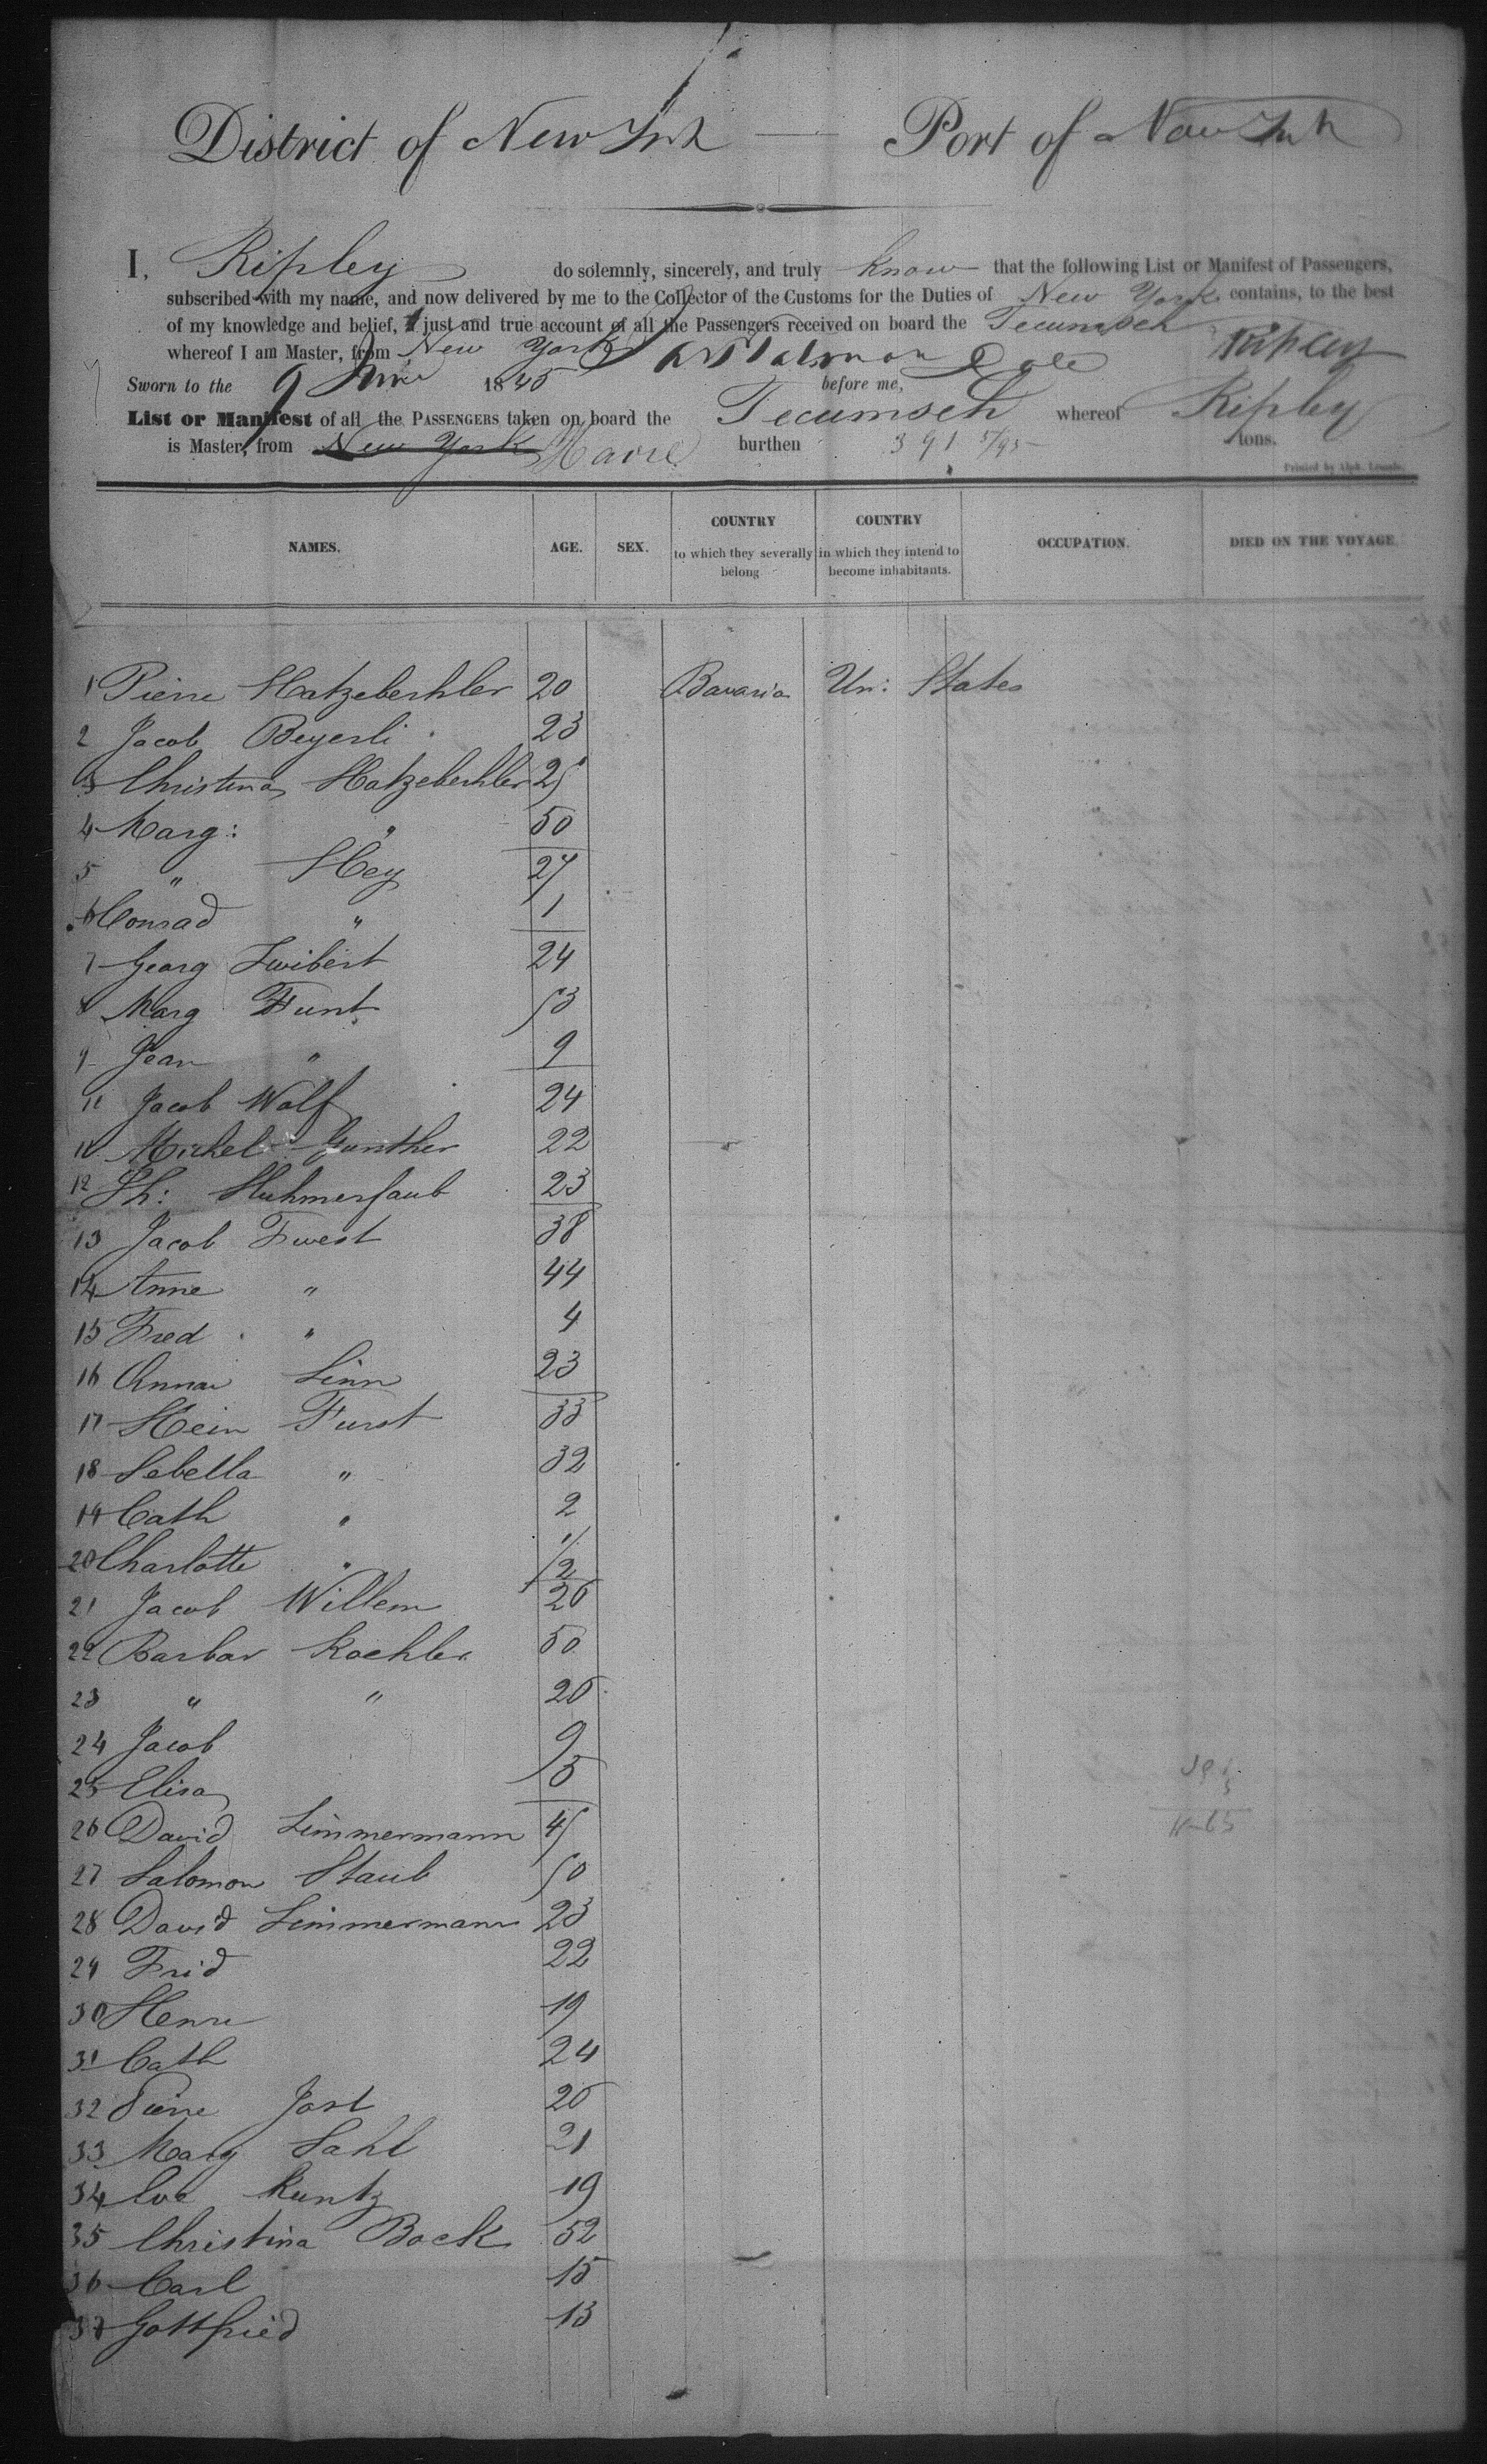 District of New York — Port of New York
I, Ripley do solemnly, sincerely, and truly know that the following List or Manifest of Passengers,
subscribed with my name, and now delivered by me to the Collector of the Customs for the Duties of New York contains, to the best
of my knowledge and belief, a just and true account of all the Passengers received on board the Tecumseh
whereof I am Master, from New York Ripley
Sworn to the 9 June 1845 before me,
List or Manifest of all the PASSENGERS taken on board the Tecumseh whereof Ripley
is Master, from New York Havre burthen 391 5/95 tons.
Printed by Alph. Lemale.
NAMES. AGE. SEX. COUNTRY to which they severally belong COUNTRY in which they intend to become inhabitants. OCCUPATION. DIED ON THE VOYAGE
1 Pierre Hatzebechler 20 Bavaria Un: States
2 Jacob Beyerli 23
3 Christina Hatzebechler 25
4 Marg: " 50
5 " Hey 27
6 Conrad " 1
7 Georg Zwibert 24
8 Marg Funt 53
9 Jean " 9
10 Jacob Wolf 24
11 Michel Gunther 22
12 Ph: 23
13 Jacob Fwest 38
14 Anne " 44
15 Fred " 4
16 Anna Linn 23
17 Hein Furst 33
18 Sebella " 32
19 Cath " 2
20 Charlotte " 1/2
21 Jacob Willem 26
22 Barbar Koehler 50
23 " " 26
24 Jacob 9
25 Elisa 5
26 David Zimmermann 45
27 Salomon Staub 50
28 David Zimmermann 23
29 Frid 22
30 Henri 19
31 Cath 24
32 Pierre Jost 26
33 Marg Sahl 21
34 Eve Kuntz 19
35 Christina Bock 52
36 Carl 15
37 Gottfried 13